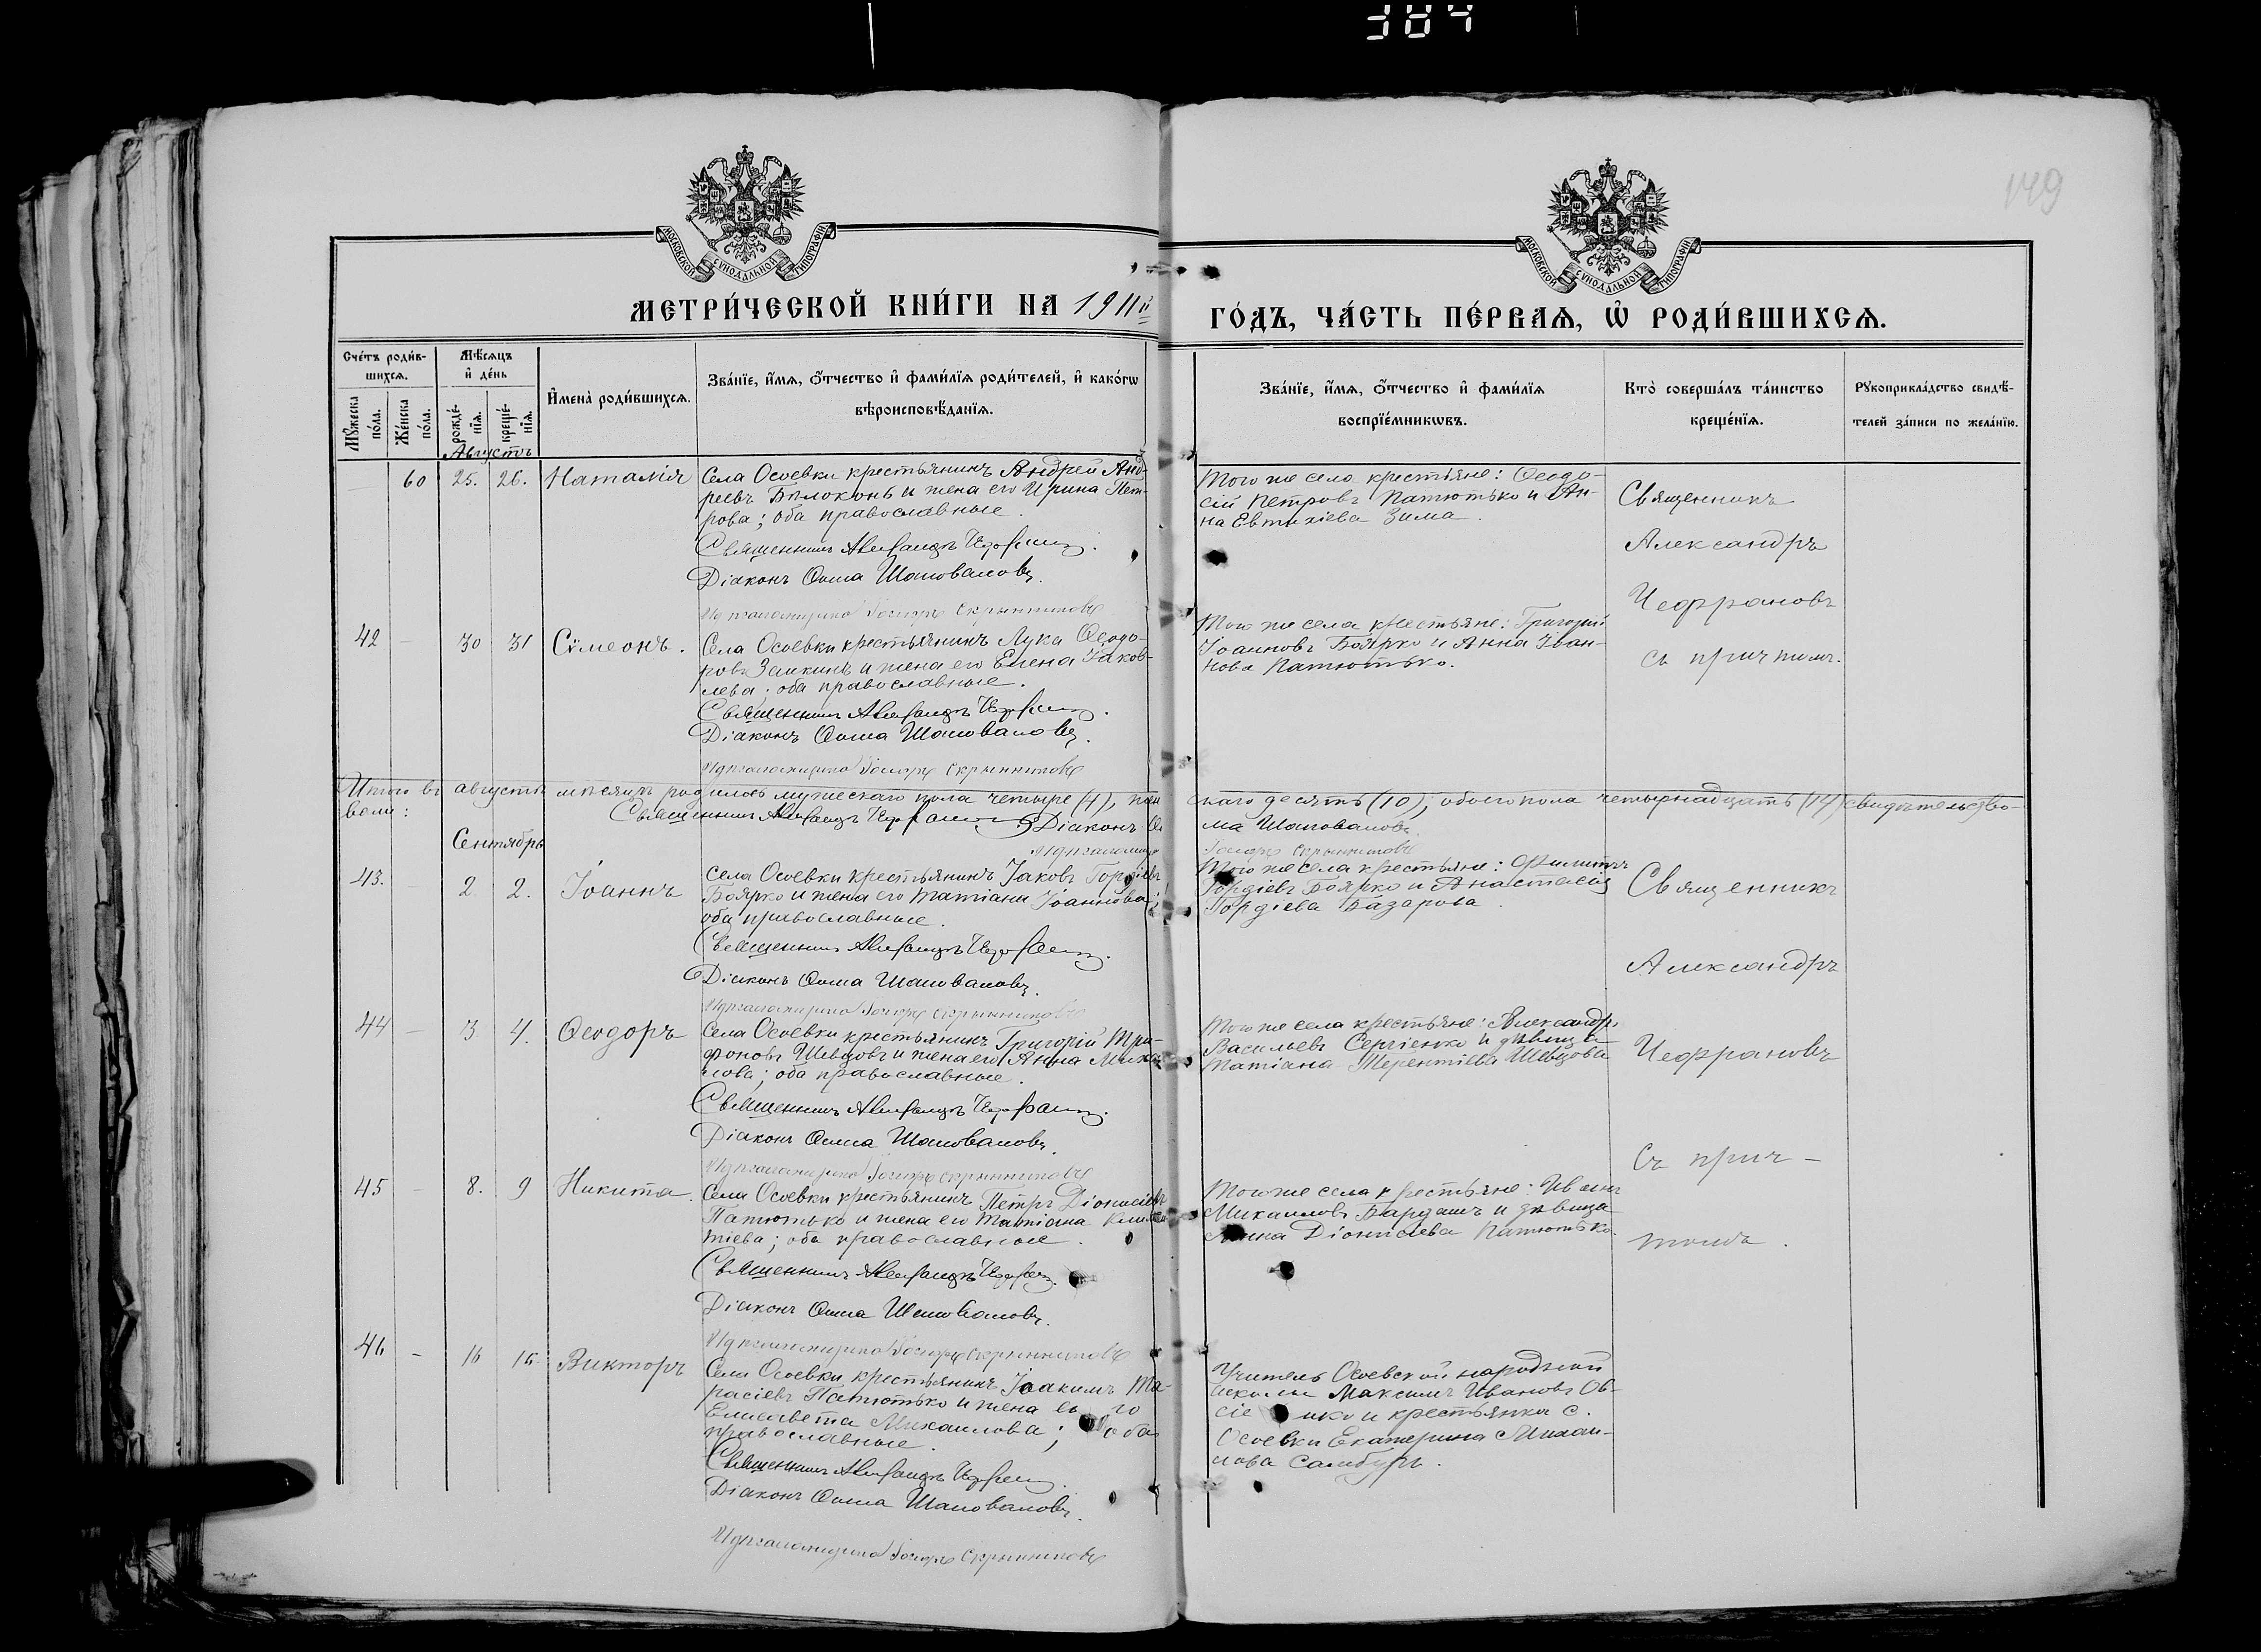 384
149
МОСКОВСКОЙ СѴНОДАЛЬНОЙ ТИПОГРАФІИ
МОСКОВСКОЙ СѴНОДАЛЬНОЙ ТИПОГРАФІИ
МЕТРИ́ЧЕСКОЙ КНИ́ГИ НА 1911й
ГО́ДЪ, ЧА́СТЬ ПЕ́РВАѦ, Ѡ РОДИ́ВШИХСѦ.
Сче́тъ роди́в-
шихсѧ.
Мꙋ́жеска
по́ла.
Же́нска
по́ла.
Мѣ́сѧцъ
и҆ де́нь
рожде́-
нїѧ.
креще́-
нїѧ.
И҆мена̀ роди́вшихсѧ.
Зва́нїе, и҆́мѧ, ѻ҆́тчество и҆ фами́лїѧ роди́телей, и҆ како́гѡ
вѣроисповѣ́данїѧ.
Зва́нїе, и҆́мѧ, ѻ҆́тчество и҆ фами́лїѧ
воспрїе́мникѡвъ.
Кто̀ соверша́лъ та́инство
креще́нїѧ.
Рꙋкоприкла́дство свидѣ́-
телей за́писи по жела́нїю.
Августъ
60 25. 26. Наталія
Села Осоевки крестьянинъ Андрей Анд-
реевъ Бѣлоконь и жена его Ирина Пет-
рова; оба православные.
Священникъ Александръ Чефрановъ.
Діаконъ Ѳома Шаповаловъ.
Скрынниковъ
Того же села крестьяне: Ѳеодо-
сій Петровъ Патютько и Ан-
на Евтихіева Зима.
Священникъ
Александръ
Чефрановъ
съ причтомъ.
42 - 30 31 Сѵмеонъ.
Села Осоевки крестьянинъ Лука Ѳеодо-
ровъ Заикинъ и жена его Елена Іаков-
лева; оба православные.
Священникъ Александръ Чефрановъ.
Діаконъ Ѳома Шаповаловъ.
Скрынниковъ
Того же села крестьяне: Григорій
Іоанновъ Боярко и Анна Іоан-
нова Патютько.
Итого въ августѣ мѣсяцѣ родилось мужескаго пола четыре (4), жен
скаго десять (10); обоего пола четырнадцать (14) свидѣтельство-
вали:
Священникъ Александръ Чефрановъ Діаконъ Ѳо
ма Шаповаловъ.
Скрынниковъ
Сентябрь
43. 2 2. Іоаннъ
Села Осоевки крестьянинъ Іаковъ Гордіевъ
Боярко и жена его Татіана Іоаннова;
оба православные.
Священникъ Александръ Чефрановъ.
Діаконъ Ѳома Шаповаловъ.
Скрынниковъ
Того же села крестьяне: Филиппъ
Гордіевъ Боярко и Анастасія
Гордіева Базарова.
Священникъ
Александръ
Чефрановъ
Съ прич-
томъ.
44 - 3 4. Ѳеодоръ
Села Осоевки крестьянинъ Григорій Три-
фоновъ Шевцовъ и жена его Анна Михаи
лова; оба православные.
Священникъ Александръ Чефрановъ.
Діаконъ Ѳома Шаповаловъ.
Скрынниковъ
Того же села крестьяне: Александръ
Васильевъ Сергіенко и дѣвица
Татіана Терентіева Шевцова
45 - 8. 9 Никита.
Села Осоевки крестьянинъ Петръ Діонисіевъ
Патютько и жена его Татіана Климен
тіева; оба православные.
Священникъ Александръ Чефрановъ.
Діаконъ Ѳома Шаповаловъ.
Скрынниковъ
Того же села крестьяне: Иванъ
Михаиловъ Бардашъ и дѣвица
Анна Діонисіева Патютько.
46 - 16 16. Викторъ
Села Осоевки крестьянинъ Іоакимъ Та-
расіевъ Патютько и жена его
Елисавета Михаилова; оба
православные.
Священникъ Александръ Чефрановъ.
Діаконъ Ѳома Шаповаловъ.
Скрынниковъ
Учитель Осоевской народной
школы Максимъ Ивановъ Ов-
сіенко и крестьянка с.
Осоевки Екатерина Михаи-
лова Самбуръ.